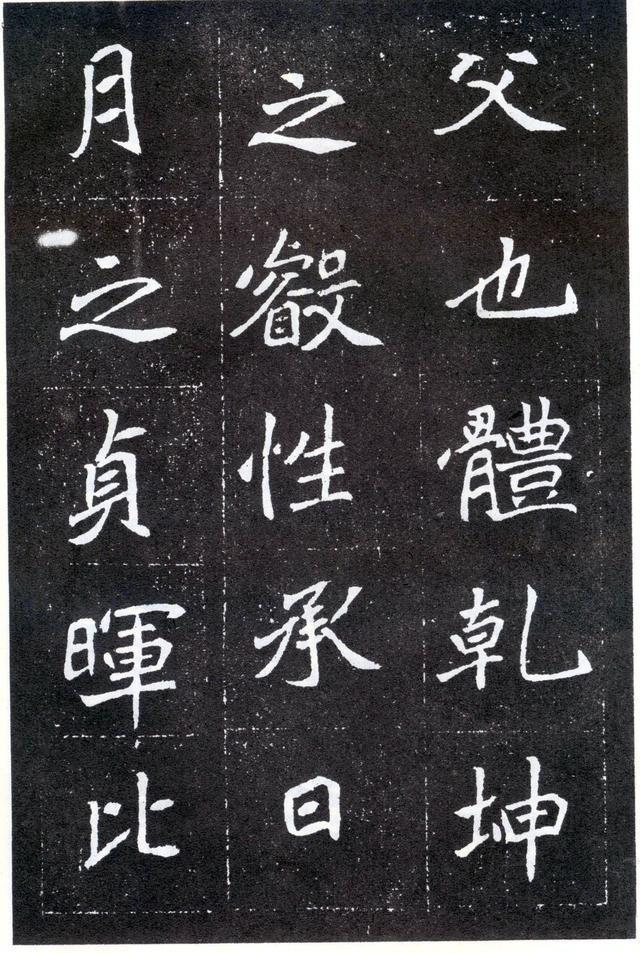 父也體乹坤
之叡性承日
月之貞暉比